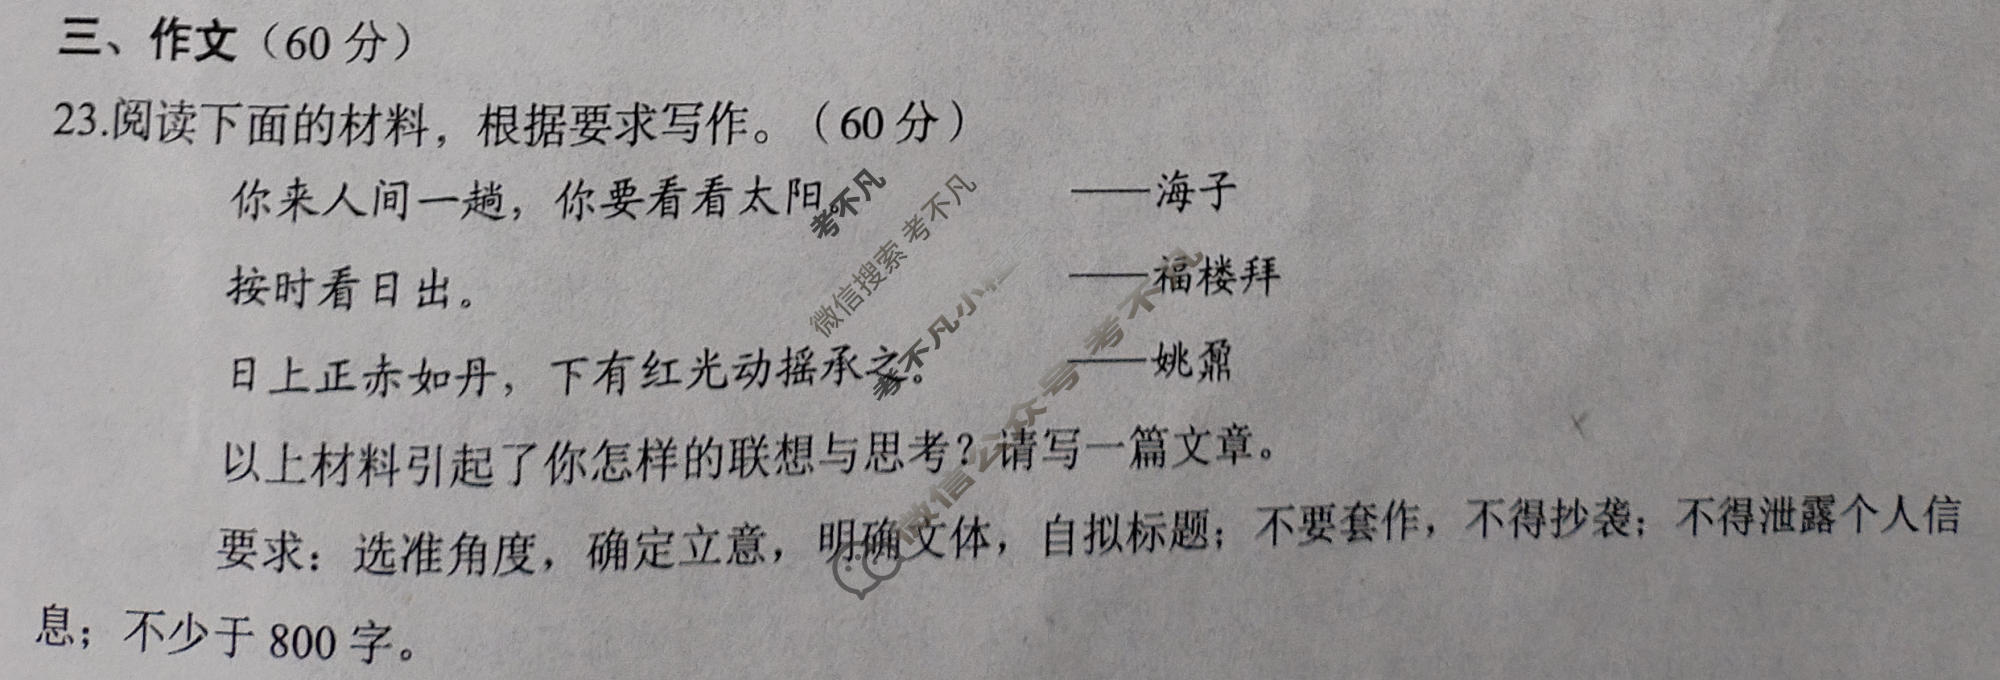 三、作文（60 分）
23.阅读下面的材料，根据要求写作。（60 分）
你来人间一趟，你要看看太阳。 ——海子
按时看日出。 ——福楼拜
日上正赤如丹，下有红光动摇承之。 ——姚鼐
以上材料引起了你怎样的联想与思考？请写一篇文章。
要求：选准角度，确定立意，明确文体，自拟标题；不要套作，不得抄袭；不得泄露个人信
息；不少于 800 字。
考不凡
微信搜索 考不凡
考不凡小
微信公众号 考不凡